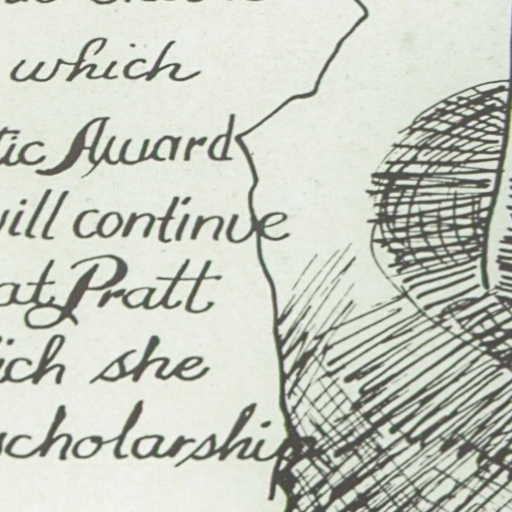 which
tic Award
will continue
at Pratt
ich she
scholarship